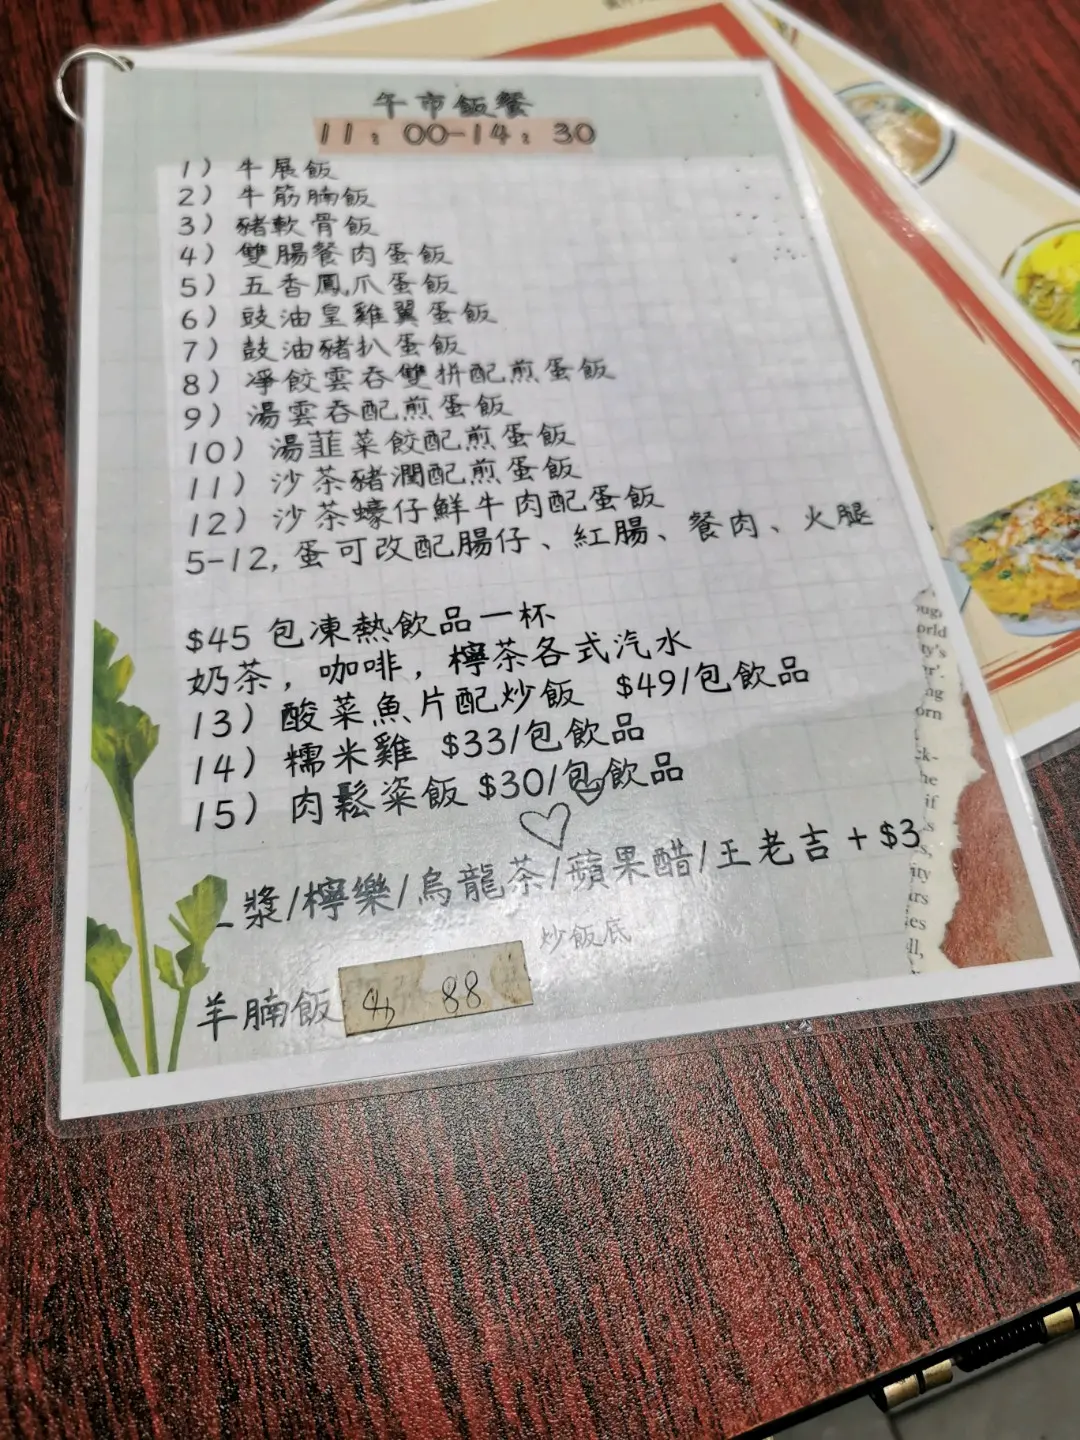 午市飯餐
11：00-14：30
1）牛展飯
2）牛筋腩飯
3）豬軟骨飯
4）雙腸餐肉蛋飯
5）五香鳳爪蛋飯
6）豉油皇雞翼蛋飯
7）鼓油豬扒蛋飯
8）凈餃雲吞雙拼配煎蛋飯
9）湯雲吞配煎蛋飯
10）湯韮菜餃配煎蛋飯
11）沙茶豬潤配煎蛋飯
12）沙茶蠔仔鮮牛肉配蛋飯
5-12, 蛋可改配腸仔、紅腸、餐肉、火腿
$45 包凍熱飲品一杯
奶茶，咖啡，檸茶各式汽水
13）酸菜魚片配炒飯 $49/包飲品
14）糯米雞 $33/包飲品
15）肉鬆粢飯 $30/包飲品
漿/檸樂/烏龍茶/蘋果醋/王老吉 + $3
炒飯底
羊腩飯 88
orld
ty's
er'.
ng
orn
ck-
he
if
s,
ity
ars
ies
ll,